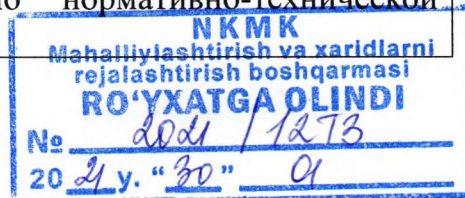 но нормативно-технической
NKMK
Mahalliylashtirish va xaridlarni
rejalashtirish boshqarmasi
RO'YXATGA OLINDI
№ 2021 / 1273
20 21 y. "30" 9